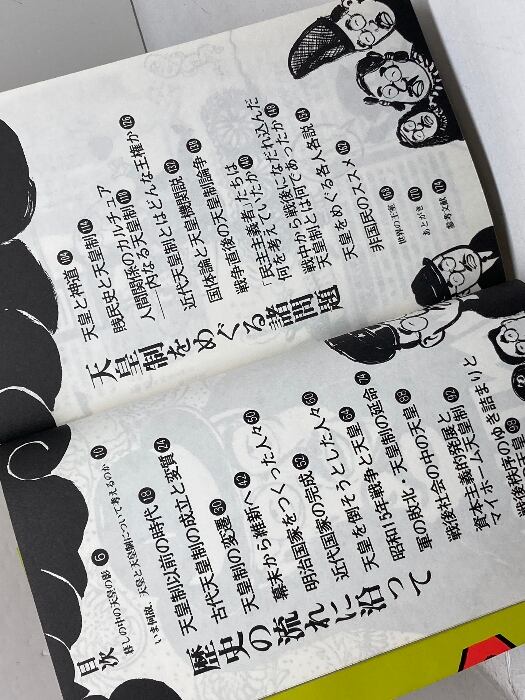 目次
暮しの中の天皇の影 6
いま何故、天皇と天皇制について考えるのか 10
歴史の流れに沿って
天皇制以前の時代 18
古代天皇制の成立と変質 24
天皇制の変遷 30
幕末から維新へ 42
明治国家をつくった人々 50
近代国家の完成 52
天皇を倒そうとした人々 60
昭和15年戦争と天皇 64
軍の敗北・天皇制の延命 74
戦後社会の中の天皇 88
資本主義的発展と
マイホーム天皇制 92
戦後秩序のゆき詰まりと
天皇 98
天皇制をめぐる諸問題
天皇と神道 104
賤民史と天皇制 114
人間関係のカルチュア
――内なる天皇制 110
近代天皇制とはどんな王権か 126
国体論と天皇機関説 132
戦争直後の天皇制論争 138
「民主主義者」たちは
何を考えていたか 140
戦中から戦後になだれ込んだ
天皇制とは何であったか 148
天皇をめぐる名人名説 154
非国民のススメ 162
世界の王家 168
あとがき 170
参考文献 174